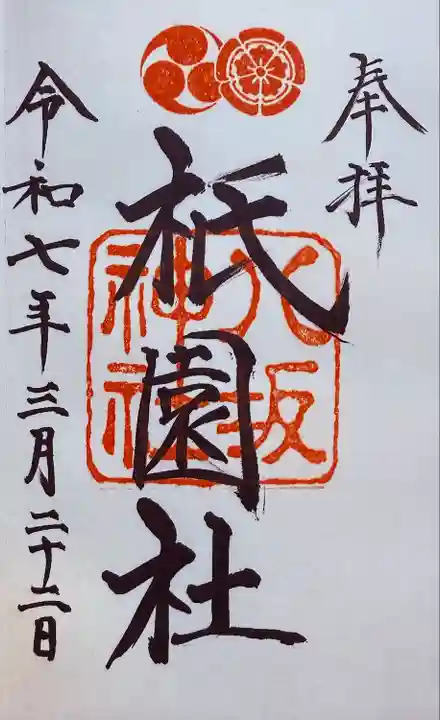 奉拝
八坂
神社
祇園社
令和七年三月二十二日